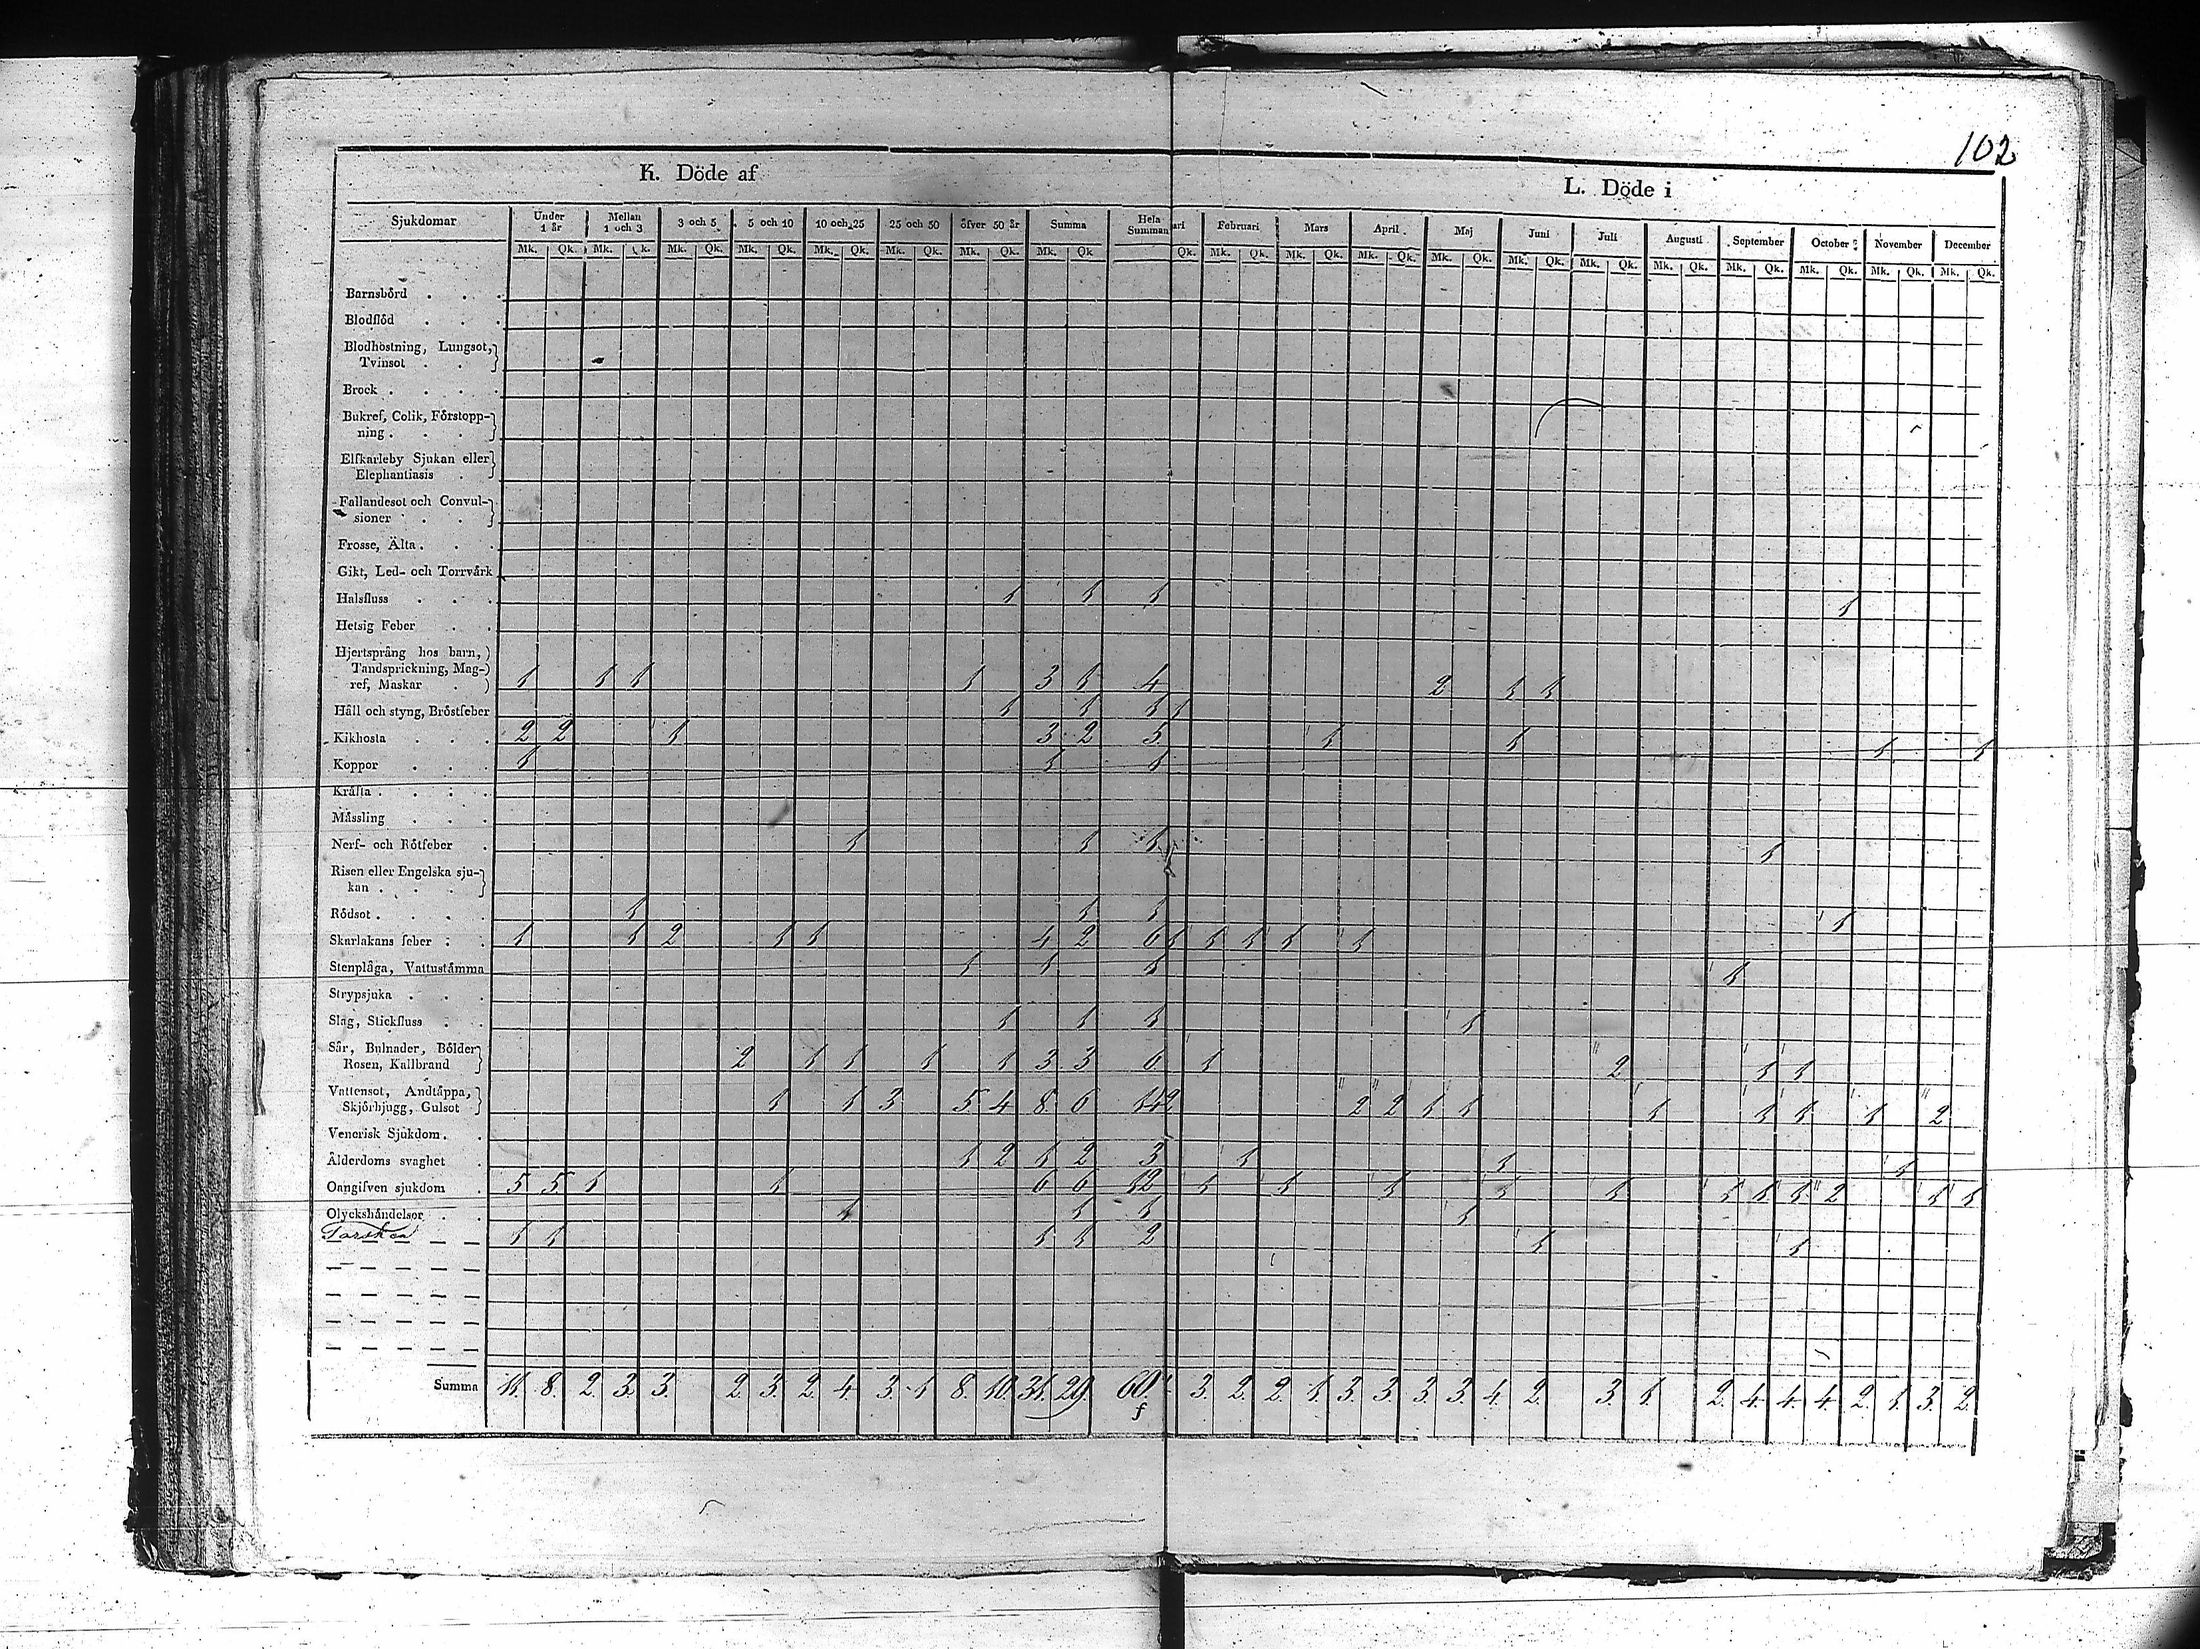 102
K. Döde af
L. Döde i
Sjukdomar Under 1 år Mellan 1 och 3 3 och 5 5 och 10 10 och 25 25 och 50 öfver 50 år Summa Hela Summan ari Februari Mars April Maj Juni Juli Augusti September October November December
Mk. Qk. Mk. Qk. Mk. Qk. Mk. Qk. Mk. Qk. Mk. Qk. Mk. Qk. Mk. Qk Qk. Mk. Qk. Mk. Qk. Mk. Qk. Mk. Qk. Mk. Qk. Mk. Qk. Mk. Qk. Mk. Qk. Mk. Qk. Mk. Qk. Mk. Qk.
Barnsbörd . . .
Blodflöd . . .
Blodhöstning, Lungsot,
Tvinsot . .
Brock . . . . .
Bukref, Colik, Förstopp-
ning . . . .
Elfkarleby Sjukan eller
Elephantiasis .
Fallandesot och Convul-
sioner . . .
Frosse, Älta . . .
Gikt, Led- och Torrvärk
Halsfluss . . . 1 1 1 1
Hetsig Feber . .
Hjertsprång hos barn,
Tandsprickning, Mag-
ref, Maskar . 1 1 1 1 3 1 4 2 1 1
Håll och styng, Bröstfeber 1 1 1 1
Kikhosta . . . 2 2 1 3 2 5 1 1 1 1
Koppor . . . 1 1 1
Kräfta . . . .
Mässling . . .
Nerf- och Rötfeber . 1 1 1 1
Risen eller Engelska sju-
kan . . . .
Rödsot . . . . 1 1 1 1
Skarlakans feber . . 1 1 2 1 1 4 2 6 1 1 1 1 1
Stenplåga, Vattustämma 1 1 1 1
Strypsjuka . . .
Slag, Stickfluss . . 1 1 1 1
Sår, Bulnader, Bölder
Rosen, Kallbrand 2 1 1 1 1 3 3 6 1 2 1 1
Vattensot, Andtäppa,
Skjörbjugg, Gulsot 1 1 3 5 4 8 6 14 2 2 2 1 1 1 1 1 1 2
Venerisk Sjukdom . .
Ålderdoms svaghet . 1 2 1 2 3 1 1 1
Oangifven sjukdom . 5 5 1 1 6 6 12 1 1 1 1 1 1 1 1 2 1 1
Olyckshändelser . . 1 1 1 1
Torsken 1 1 1 1 2 1 1
Summa 11. 8. 2. 3. 3. 2. 3. 2. 4. 3. 1 8. 10. 31. 29. 60. 3. 2. 2. 1. 3. 3. 3. 3. 4. 2. 3. 1. 2. 4. 4. 4. 2. 1. 3. 2.